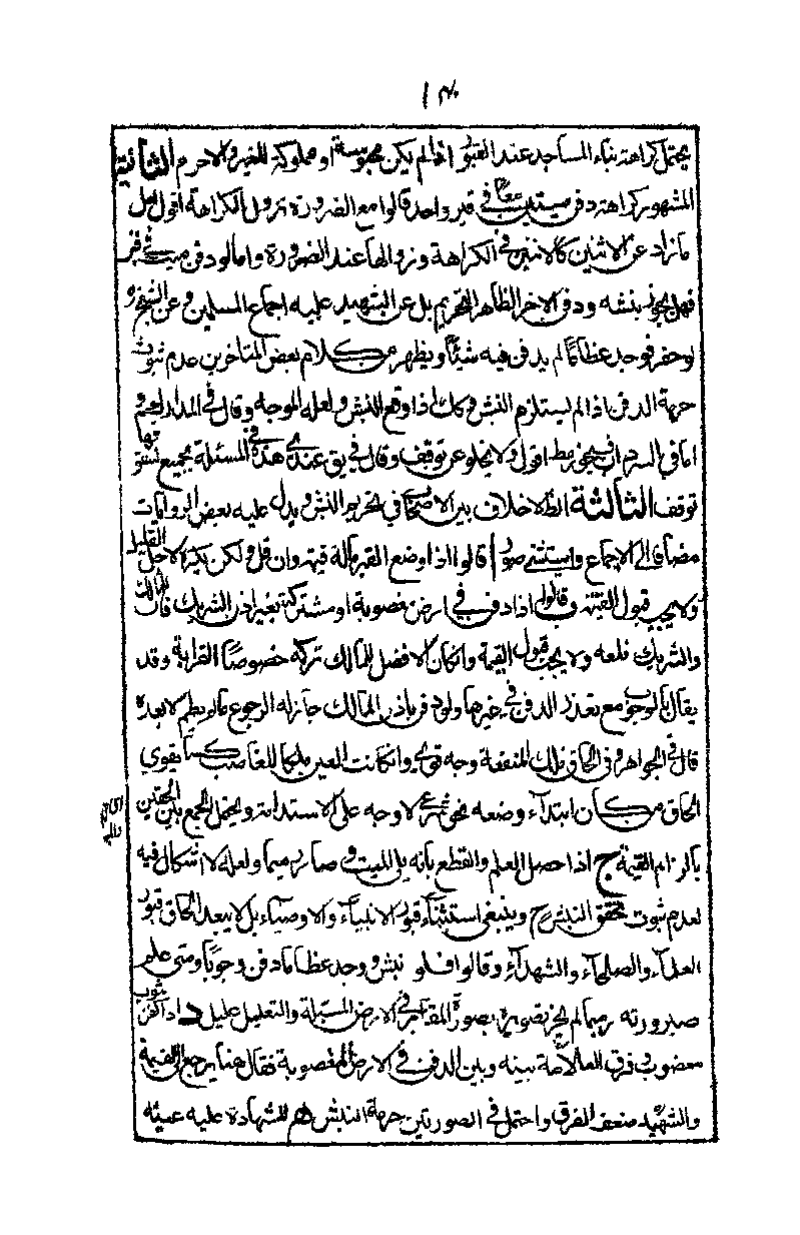 يحتمل كراهة بناء المساجد عند القبور اذا لم يكن محبوسة او مملوكة للغير والا حرم الثانية
المشهور كراهة دفن ميتين معا في قبر واحد قالوا مع الضرورة تزول الكراهة اقول هل
ما زاد عن الاثنين كالاثنين في الكراهة وزوالها عند الضرورة واما لو دفن ميت في قبر
فهل يجوز نبشه ودفن الاخر الظاهر التحريم بل عن الشهيد عليه اجماع المسلمين وعن الشيخ
لو حفر فوجد عظاما لم يدفن فيه شيئا ويظهر من كلام بعض المتاخرين عدم ثبوت
حرمة الدفن اذا لم يستلزم النبش وكك اذا وقع النبش ولعله الموجه وقال في المدارك نعم
اما في السرداب فيجوز مط اقول ولا يخلو عن توقف وقال في يق عندي هذه المسئلة بجميع شقوقها
توقف الثالثة الظ لا خلاف بين الاصحاب في تحريم النبش ويدل عليه بعض الروايات
مضافا الى الاجماع واستثني صور ا قالوا اذا وضع القبر ماله قيمة وان قل ولكن يكره لاجل القليل
ولا يجب قبول القيمة ب قالوا اذا دفن في ارض مغصوبة او مشتركة بغير اذن الشريك فان للمالك
والشريك قلعه ولا يجب قبول القيمة وان كان الافضل للمالك تركه خصوصا القرابة وقد
يقال بالوجوب مع تعذر الدفن في غيرها ولو دفن باذن المالك جاز له الرجوع ما لم يطم لا بعده
قال في الجواهر وفي الحاق ملك المنفعة وجه قوي وان كانت العين ملكا للغاصب كما يقوي
الحاق من كان ابتداء وضعه بنحو شرعي لا وجه على الاستدامة ويحتمل الجمع بين الحقين
بالزام القيمة ج اذا حصل العلم والقطع بانه بلى الميت وصار رميما ولعله لا اشكال فيه
لعدم ثبوت تحقق النبش ح وينبغي استثناء قبور الانبياء والاوصياء بل لا يبعد الحاق قبور
العلماء والصلحاء والشهداء وقالوا فلو نبش ووجد عظاما دفن وجوبا ومتى علم
صيرورته رميما لم يجز تصويره بصورة المقابر في الارض المسبلة والتعليل عليل د اذا كفن بثوب
مغصوب وفرق العلامة بينه وبين الدفن في الارض المغصوبة فقال هنا يرجع الى القيمة
والشهيد ضعف الفرق واحتمل في الصورتين حرمة النبش هم للشهادة عليه عينه